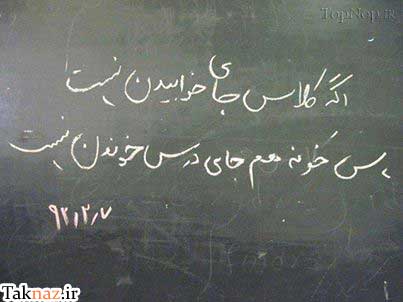 TopNop.ir
اگه کلاس جای خوابیدن نیست
پس خونه هم جای درس خوندن نیست
۹۲٫۲٫۷
Taknaz.ir